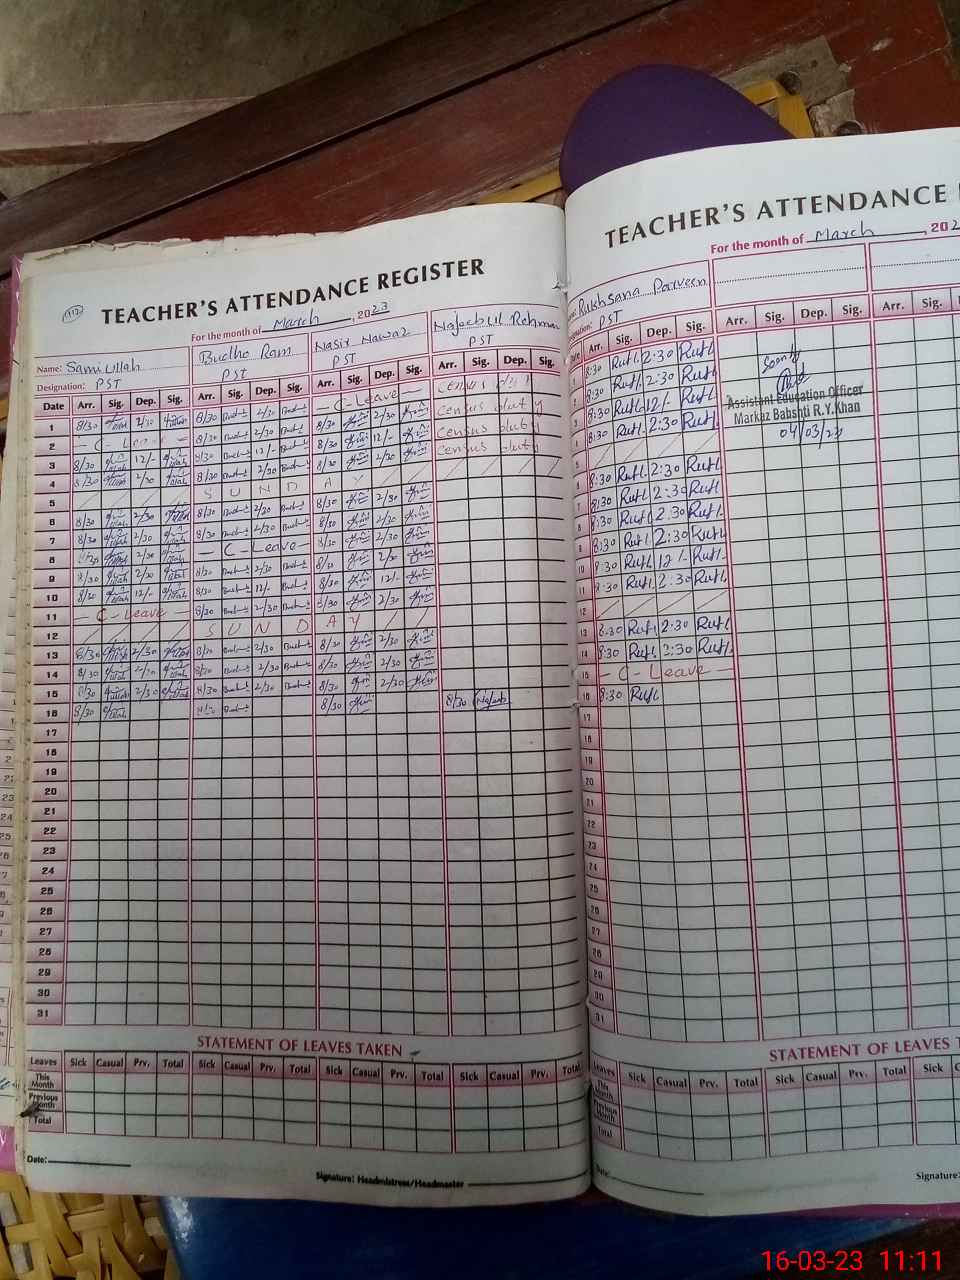 112
TEACHER'S ATTENDANCE REGISTER
For the month of March, 2023
Name: Samiullah Budho Ram Nasir Nawaz Najeeb Ul Rehman
Designation: PST PST PST PST
Date Arr. Sig. Dep. Sig. Arr. Sig. Dep. Sig. Arr. Sig. Dep. Sig. Arr. Sig. Dep. Sig.
1 8/30 2/30 8/30 2/30 - C-Leave - Census duty
2 - C-Leave - 8/30 2/30 8/30 2/30 Census duty
3 8/30 12/- 8/30 12/- 8/30 12/- Census duty
4 8/30 2/30 8/30 2/30 8/30 2/30 Census duty
5 SUNDAY
6 8/30 2/30 8/30 2/30 8/30 2/30
7 8/30 2/30 8/30 2/30 8/30 2/30
8 2/30 - C-Leave - 8/30 2/30
9 8/30 2/30 8/30 2/30 8/30 2/30
10 8/30 12/- 8/30 12/- 8/30 12/-
11 - C-Leave 8/30 2/30 8/30 2/30
12 SUNDAY
13 8/30 2/30 8/30 2/30 8/30 2/30
14 8/30 2/30 8/30 2/30 8/30 2/30
15 8/30 2/30 8/30 2/30 8/30 2/30
16 8/30 8/30 8/30 8/30
17
18
19
20
21
22
23
24
25
26
27
28
29
30
31
STATEMENT OF LEAVES TAKEN
Leaves Sick Casual Prv. Total Sick Casual Prv. Total Sick Casual Prv. Total Sick Casual Prv. Total
This Month
Previous Month
Total
Date:
Signature: Headmistress/Headmaster
TEACHER'S ATTENDANCE
For the month of March, 202
Rukhsana Parveen
PST
Date Arr. Sig. Dep. Sig. Arr. Sig. Dep. Sig. Arr. Sig.
1 8:30 2:30
2 8:30 2:30
3 8:30 12/-
4 8:30 2:30
5
6 8:30 2:30
7 8:30 2:30
8 8:30 2:30
9 8:30 2:30
10 8:30 12/-
11 8:30 2:30
12
13 8:30 2:30
14 8:30 2:30
15 - C-Leave -
16 8:30
17
18
19
20
21
22
23
24
25
26
27
28
29
30
31
Assistant Education Officer
Markaz Babshti R.Y.Khan
04/03/23
STATEMENT OF LEAVES
Leaves Sick Casual Prv. Total Sick Casual Prv. Total Sick
This Month
Previous Month
Total
Date:
Signature:
16-03-23 11:11